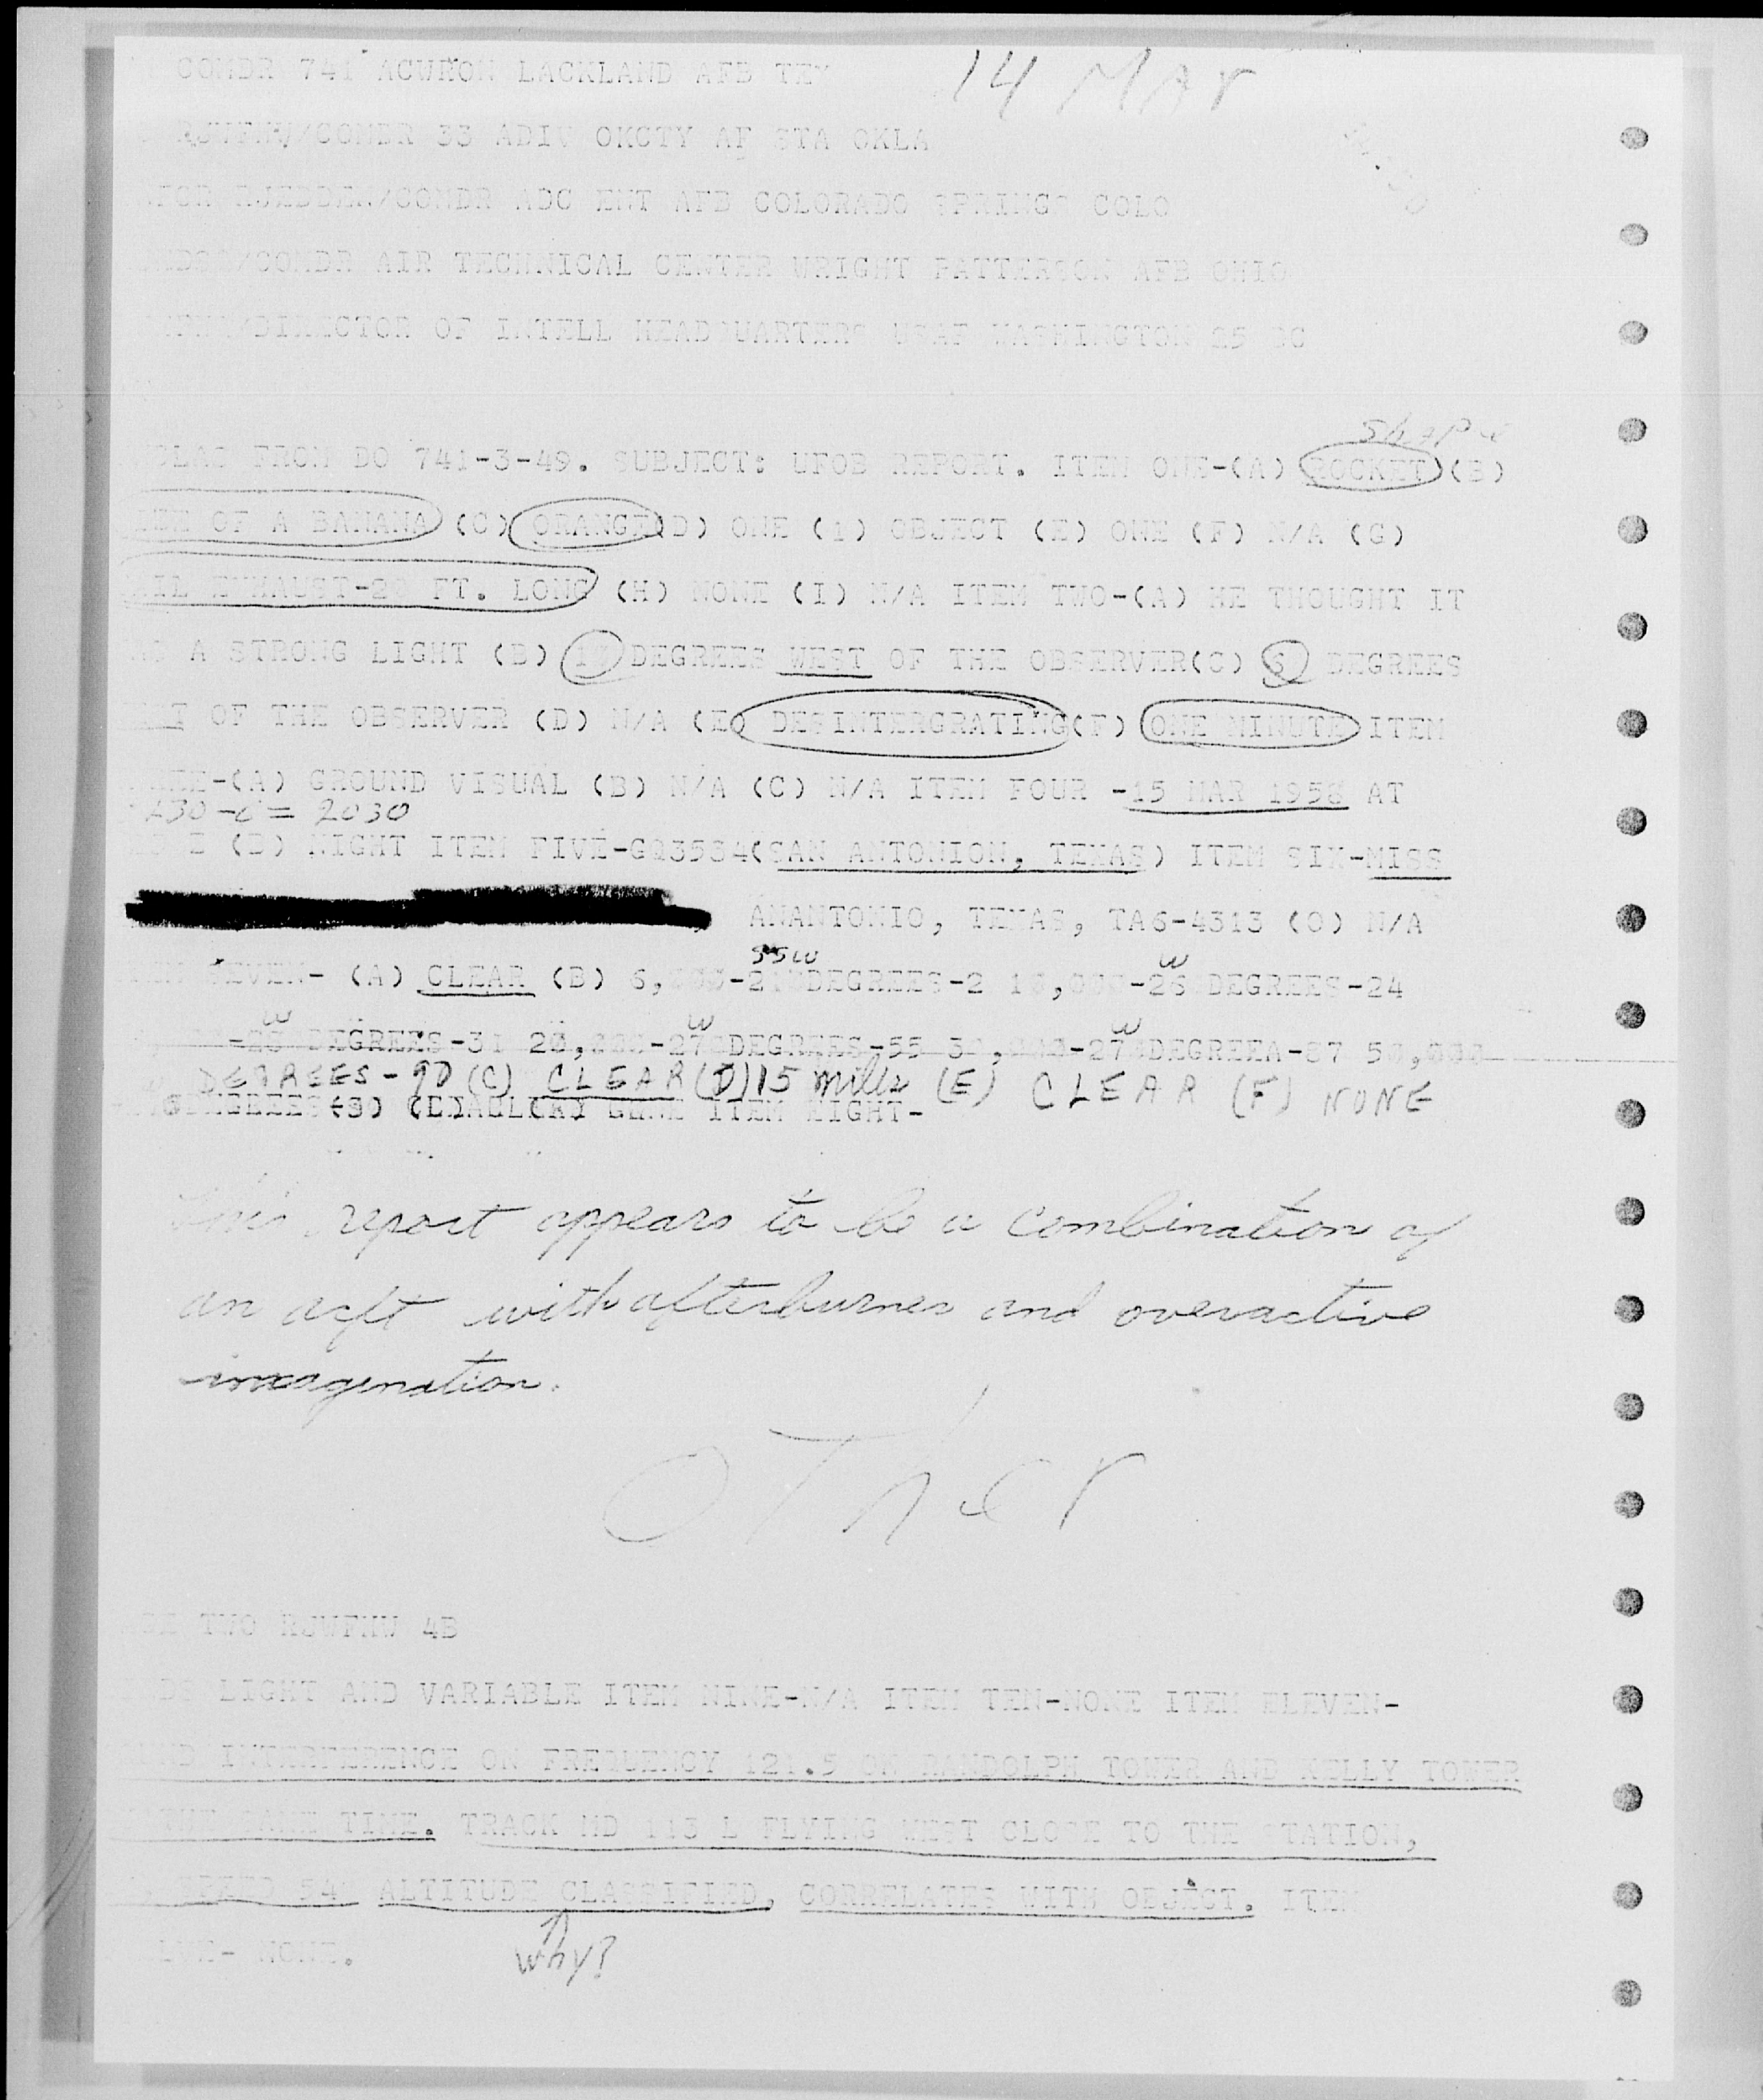 COMDR 741 ACWRON LACKLAND AFB TEX 14 MAr
/COMDR 33 ADIV OKCTY AF STA OKLA
/COMDR ADC ENT AFB COLORADO SPRINGS COLO
/COMDR AIR TECHNICAL CENTER WRIGHT PATTERSON AFB OHIO
/DIRECTOR OF INTELL HEADQUARTERS USAF WASHINGTON 25 DC
Shape
FROM DO 741-3-49. SUBJECT: UFOB REPORT. ITEM ONE-(A) ROCKET (B)
OF A BANANA (C) ORANGE (D) ONE (1) OBJECT (E) ONE (F) N/A (G)
EXHAUST-20 FT. LONG (H) NONE (I) N/A ITEM TWO-(A) HE THOUGHT IT
A STRONG LIGHT (B) DEGREES WEST OF THE OBSERVER(C) DEGREES
OF THE OBSERVER (D) N/A (E) DESINTERGRATING(F) ONE MINUTE ITEM
-(A) GROUND VISUAL (B) N/A (C) N/A ITEM FOUR -15 MAR 1958 AT
= 2030
(B) NIGHT ITEM FIVE-GQ3534(SAN ANTONION, TEXAS) ITEM SIX-MISS
ANANTONIO, TEXAS, TA6-4313 (O) N/A
SSW W
SEVEN- (A) CLEAR (B) 6,000-210DEGREES-2 10,000-260DEGREES-24
W W W
DEGREES-31 20,000-270DEGREES-55 30,000-270DEGREEA-87 50,000
DEGREES-90 (C) CLEAR (D) 15 mills (E) CLEAR (F) NONE
ITEM EIGHT-
This report appears to be a combination of
an acft with afterburner and overactive
imagenation.
oTher
TWO RJWFHW 4B
LIGHT AND VARIABLE ITEM NINE-N/A ITEM TEN-NONE ITEM ELEVEN-
INTERFERENCE ON FREQUENCY 121.5 ON RANDOLPH TOWER AND KELLY TOWER
SAME TIME. TRACK MD 113 L FLYING WEST CLOSE TO THE STATION,
SPEED 540 ALTITUDE CLASSIFIED, CORRELATES WITH OBJECT. ITEM
- NONE.
why?